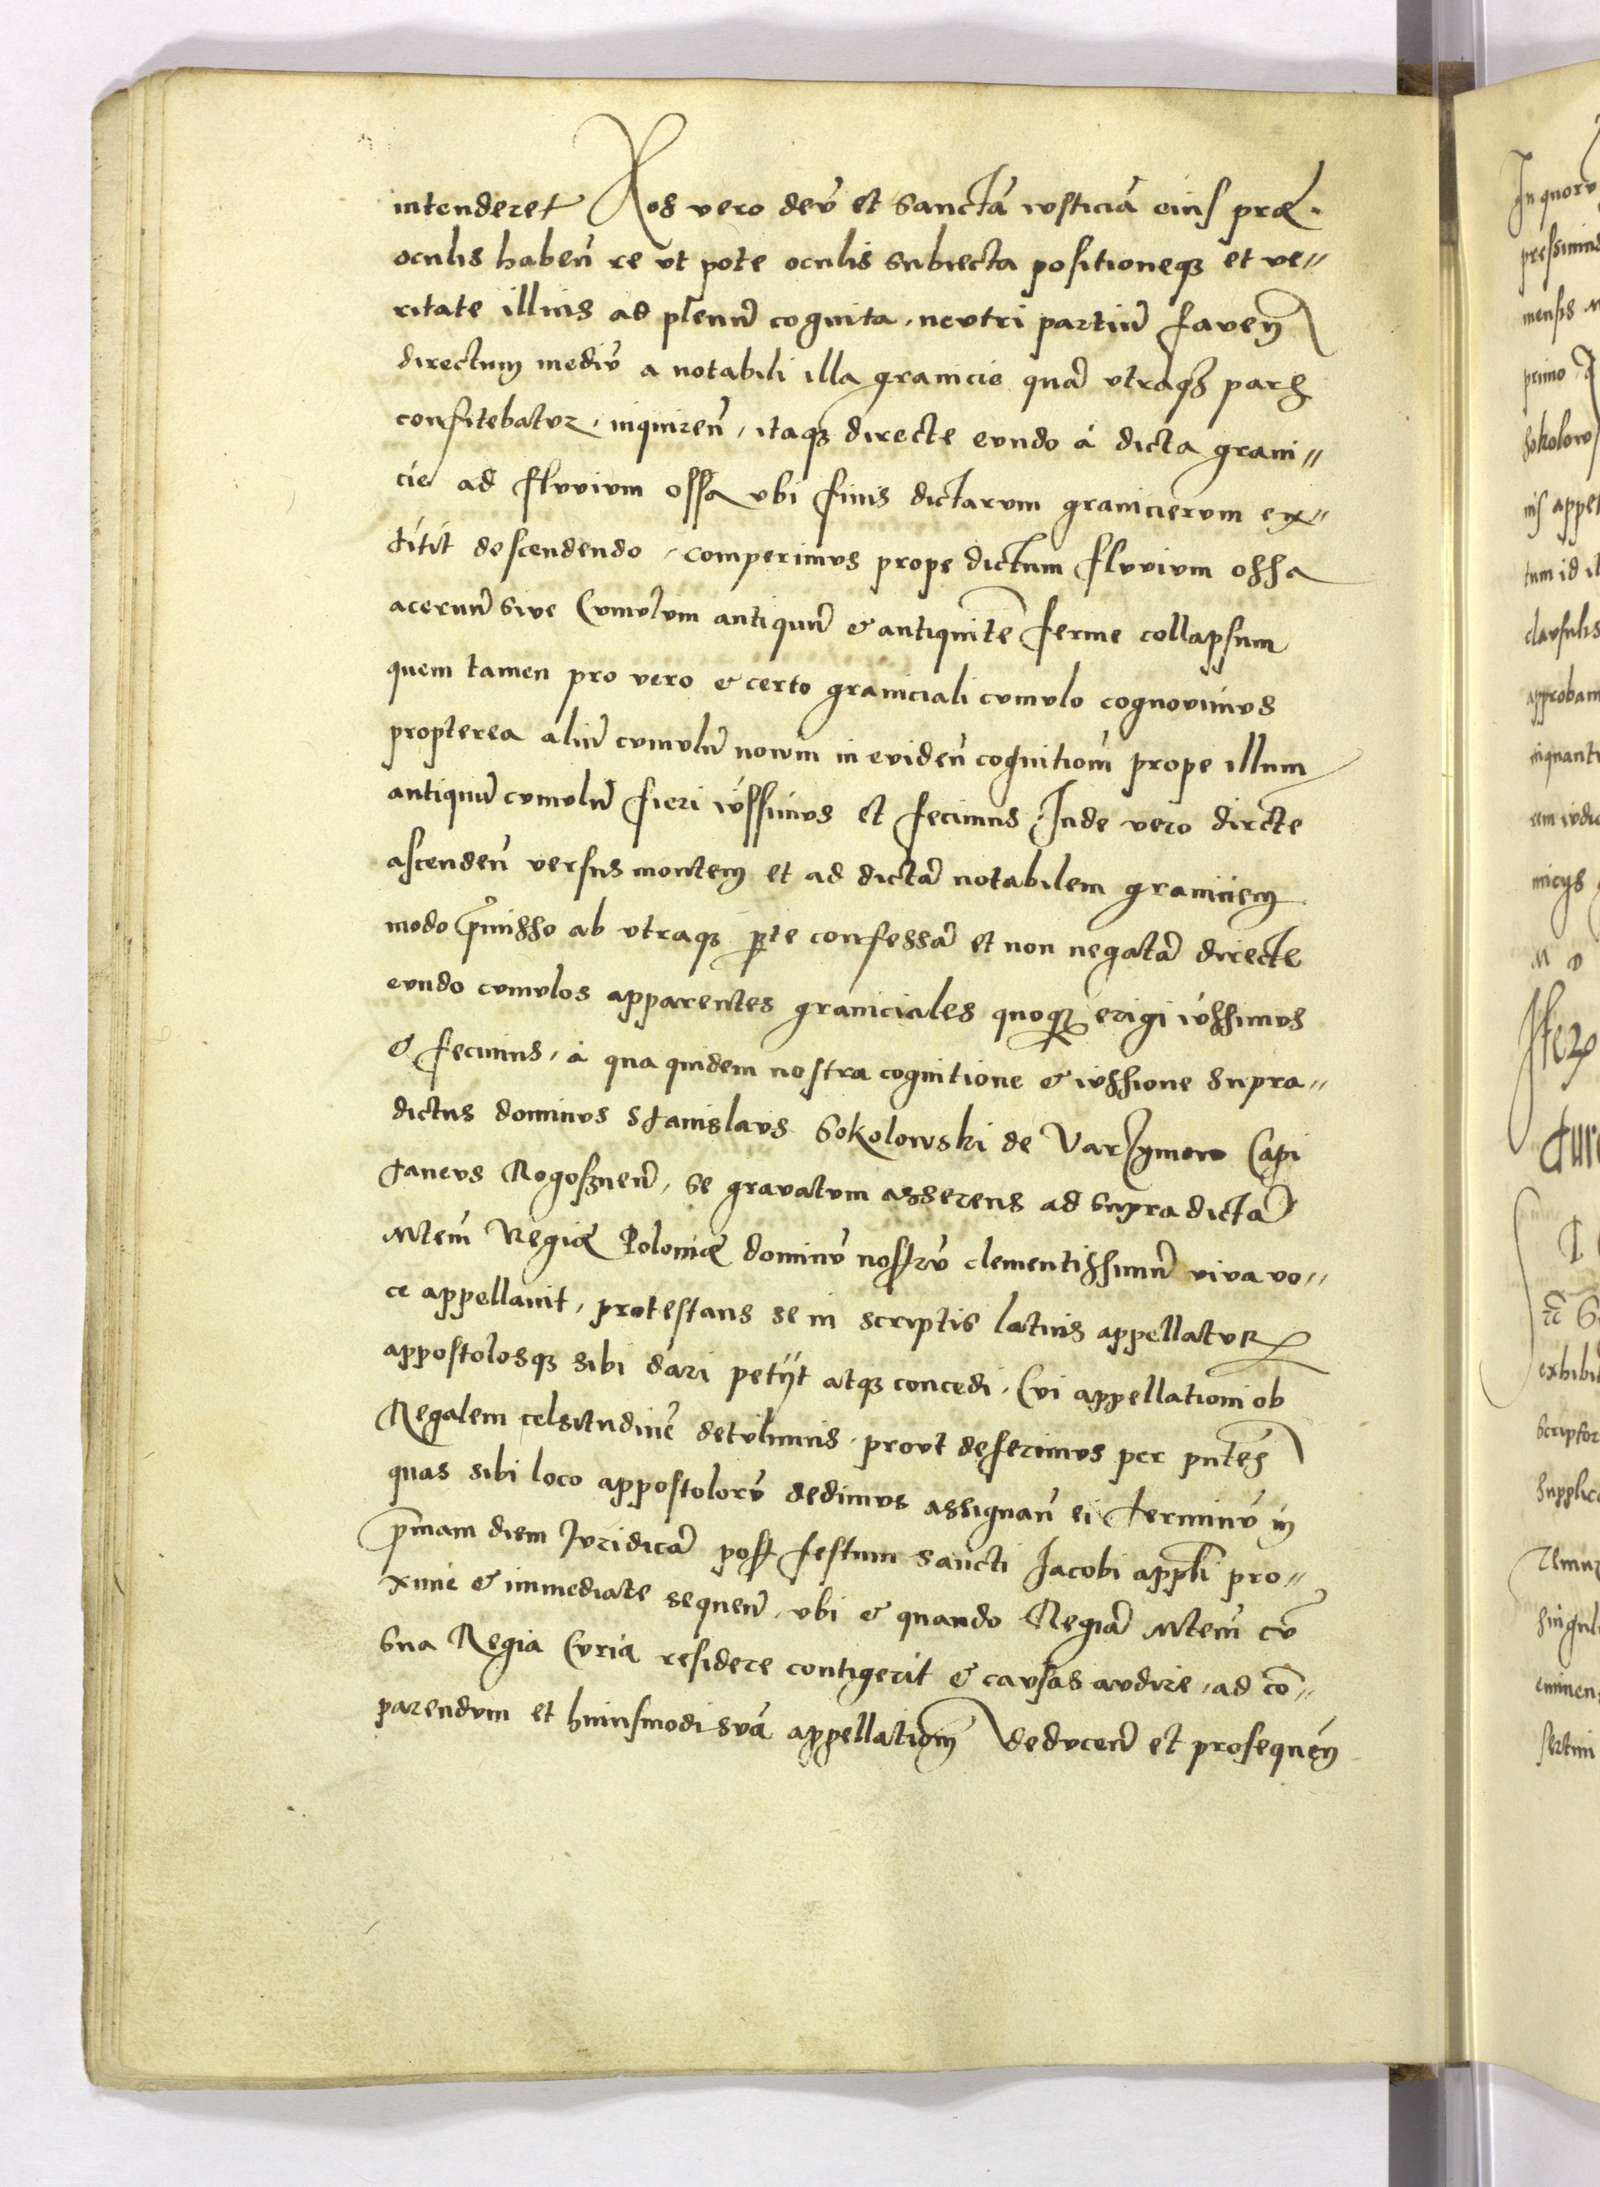 intenderet Nos vero deū et Sanctā iusticiā eius præ
oculis habeñ re ut pote oculis subiecta positioneqʒ et ve⸗
ritate illius ad plenū cognita, neutri partiū faveñ
directum mediū a notabili illa granicie quā utraqʒ pars
confitebatur, inquireñ, itaqʒ directe eundo á dicta grani⸗
cie ad fluvium ossa ubi finis dictarum granicierum ex⸗
titit descendendo, comperimus prope dictum fluvium ossa
acervū sive Cumulum antiquū & antiquitē ferme collapsum
quem tamen pro vero & certo graniciali cumulo cognovimus
propterea aliū cumulū novum in evideñ cognitionē prope illum
antiquū cumulū fieri iussimus et fecimus, Inde vero dircte
ascendeñ versus montem et ad dictā notabilem graniciem
modo p̄misso ab utraqʒ p̄te confessā et non negatā directe
eundo cumulos apparentes graniciales quoqʒ erigi iussimus
& fecimus, á qua quidem nostra cognitione & iussione supra⸗
dictus dominus Stanislaus Sokolowski de Varzymow Capi
taneus Rogoszneñ, se gravatum asserens ad supra dictā
Mtem̄ Regiæ Poloniæ dominū nostrū clementissimū viva vo⸗
ce appellavit, protestans se in scriptis latius appellatur
appostolosqʒ sibi dari petiit atqʒ concedi, Cui appellationi ob
Regalem celsitudinē detulimus, prout deferimus per pñtes
quas sibi loco appostolorū dedimus assignañ ei terminū in
p̄mam diem Iuridicā post festum sancti Iacobi appli pro⸗
xime & immediate sequeñ, ubi & quando Regiā Mtem̄ cū
sua Regia Curia residere contigerit & causas audire, ad cō⸗
parendum et huiusmodi suā appellationē deduceñ et prosequeñ